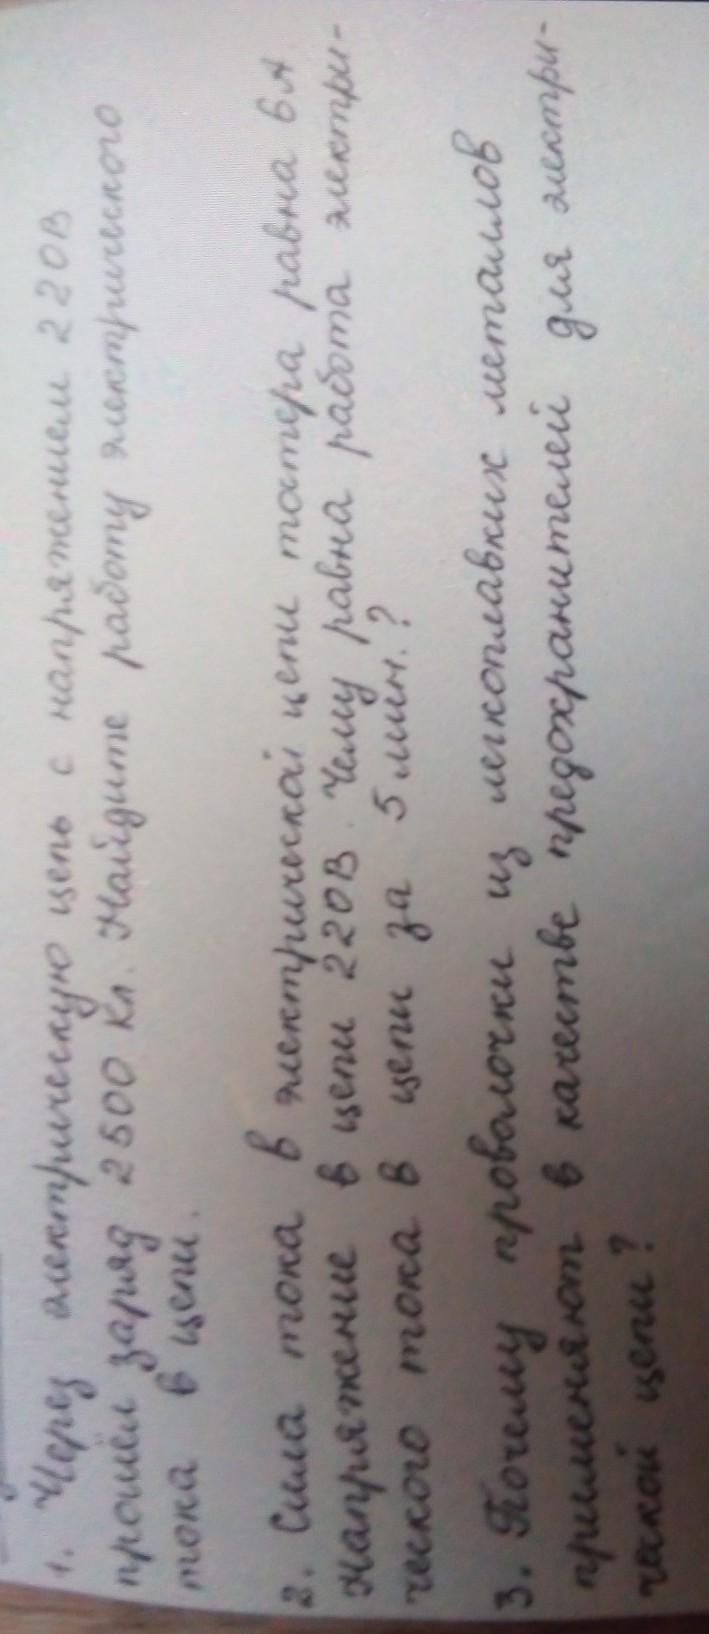 1. Через электрическую цепь с напряжением 220В
прошёл заряд 2500 Кл. Найдите работу электрического
тока в цепи.
2. Сила тока в электрической цепи тостера равна 6А.
Напряжение в цепи 220В. Чему равна работа электри-
ческого тока в цепи за 5 мин.?
3. Почему проволочки из легкоплавких металлов
применяют в качестве предохранителей для электри-
ческой цепи?